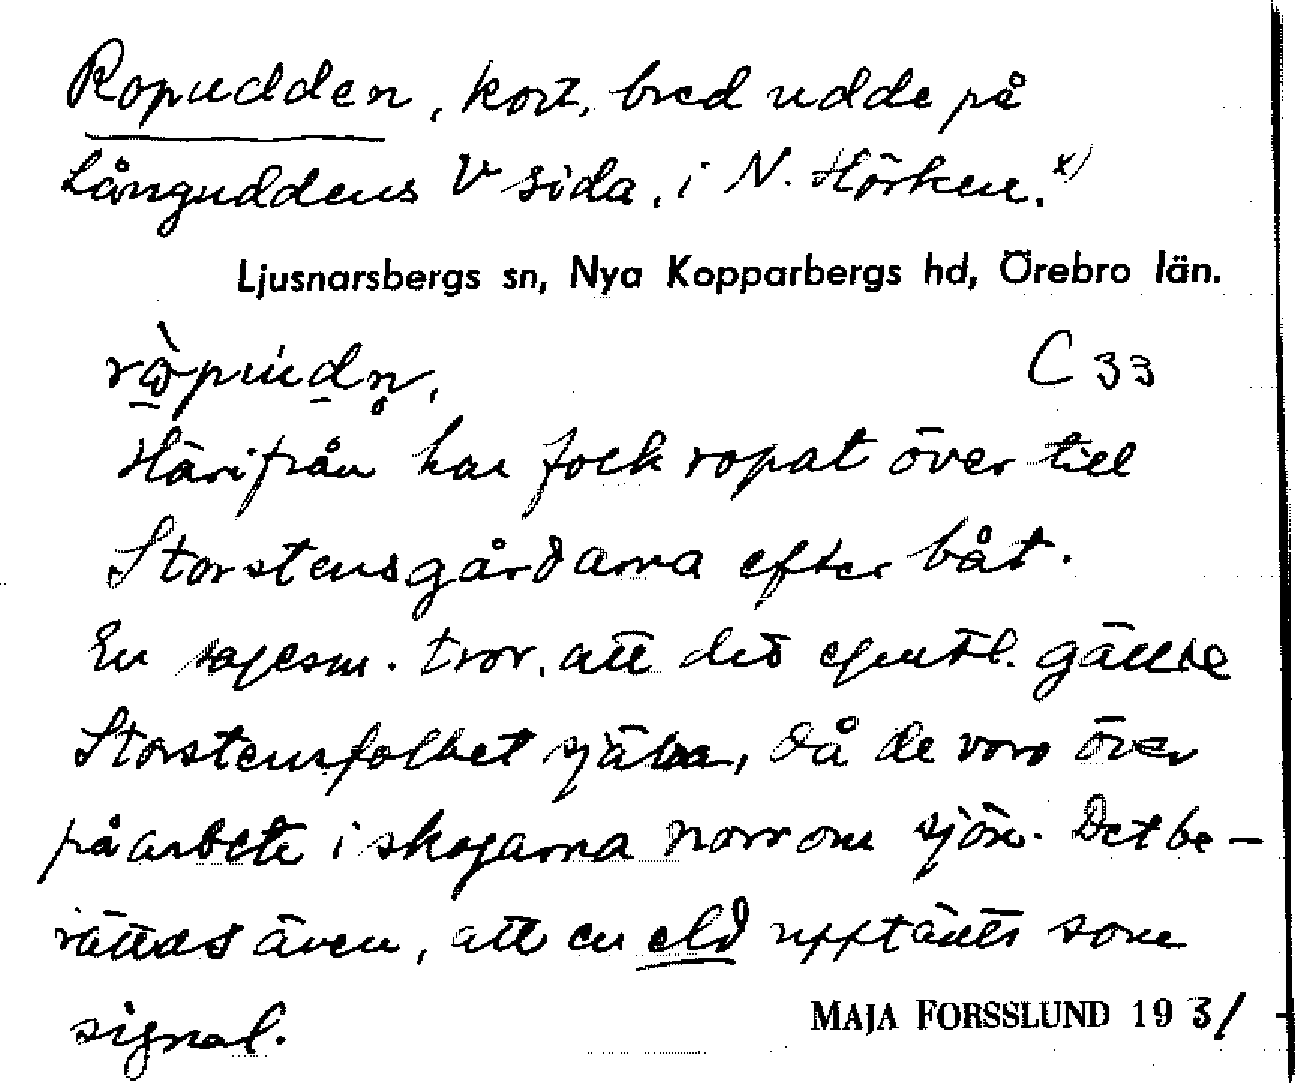 Ropudden, kort, bred udde på
Långuddens V sida, i N. Hörken.x)
Ljusnarsbergs sn, Nya Kopparbergs hd, Örebro län.
C 33
Härifrån har folk ropat över till
Storstensgårdarna efter båt.
En sagesm. tror, att det egentl. gällde
Storstensfolket själva, då de voro över
på arbete i skogarna norr om sjön. Det be-
rättas även, att en eld upptänts som
signal.
MAJA FORSSLUND 1931